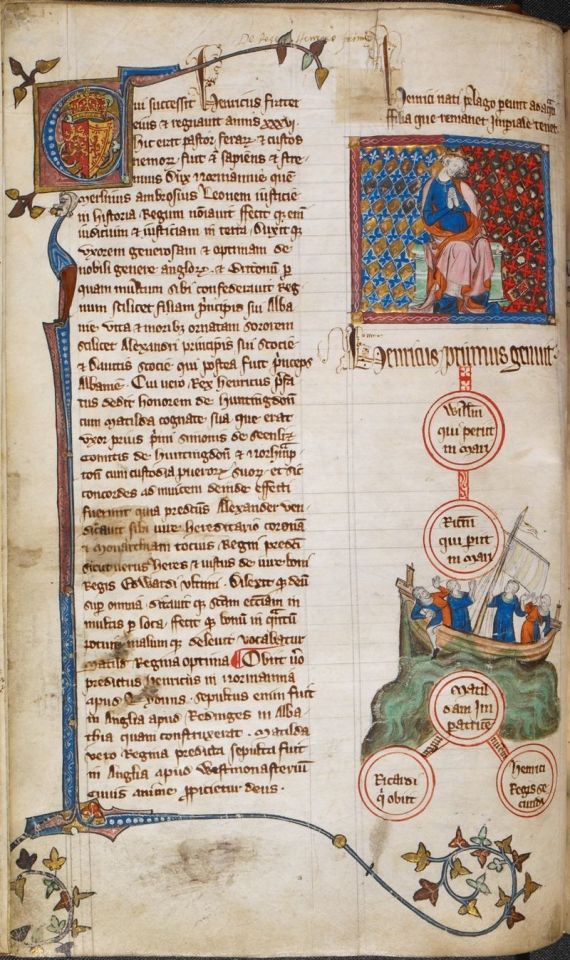 De rege Henrico primo
Cui successit Henricus frater
eius & regnauit annis xxxvi
hic erit pastor ferar & custos
nemor fuit .n. sapiens & stre
nuus Dux Normannie quem
Merlinus ambrosius Leonem iusticie
in historia Regum nominauit ffecit q; enim
iudicium & iusticiam in terra . Duxit q;
uxorem generosam & optimam de
nobili genere anglor & Britonum p
quam multum sibi confederauit Reg
num scilicet filiam principis sui Alba
nie . vita & morib; ornatam sororem
scilicet Alexandri principis sui Scocie
& Dauitis Scocie qui postea fuit princeps
Albanie . Cui vero Rex Henricus prefa
tus dedit honorem de Huntingdon
cum Matilda cognata sua que erat
vxor prius primi Simonis de Seenliz
Comitis de huntingdon & Norhamp
ton cum custodia pueror suor & sic
concordes ad inuicem deinde effecti
fuerunt quia predictus Alexander ven
dicauit sibi iure hereditario coronam
& Monarchiam tocius Regni predicti
sicut verus heres & iustus de iure boni
Regis Edwardi vltimi . Dilexit q; deum
sup omnia . ditauit q; scam ecciam in
multis p loca . ffecit q; bonum in quantum
potuit malum q; deleuit vocabatur
Matild Regina optima Obiit vero
predictus henricus in Normannia
apud . sepultus enim fuit
in Anglia apud Redinges in Abba
thia quam construxerat . Matilda
vero Regina predicta sepulta fuit
in Anglia apud Westmonasterium
cuius anime propicietur deus .
Henrici nati pelago pereunt
filia que remanet Impiale tenet
Henricus primus genuit
Willm
qui periit
in mari
Ricm
qui piit
in mari
Matil
dam Im
patrice
Ricardi
q obiit
henrici
Regis se
cundi